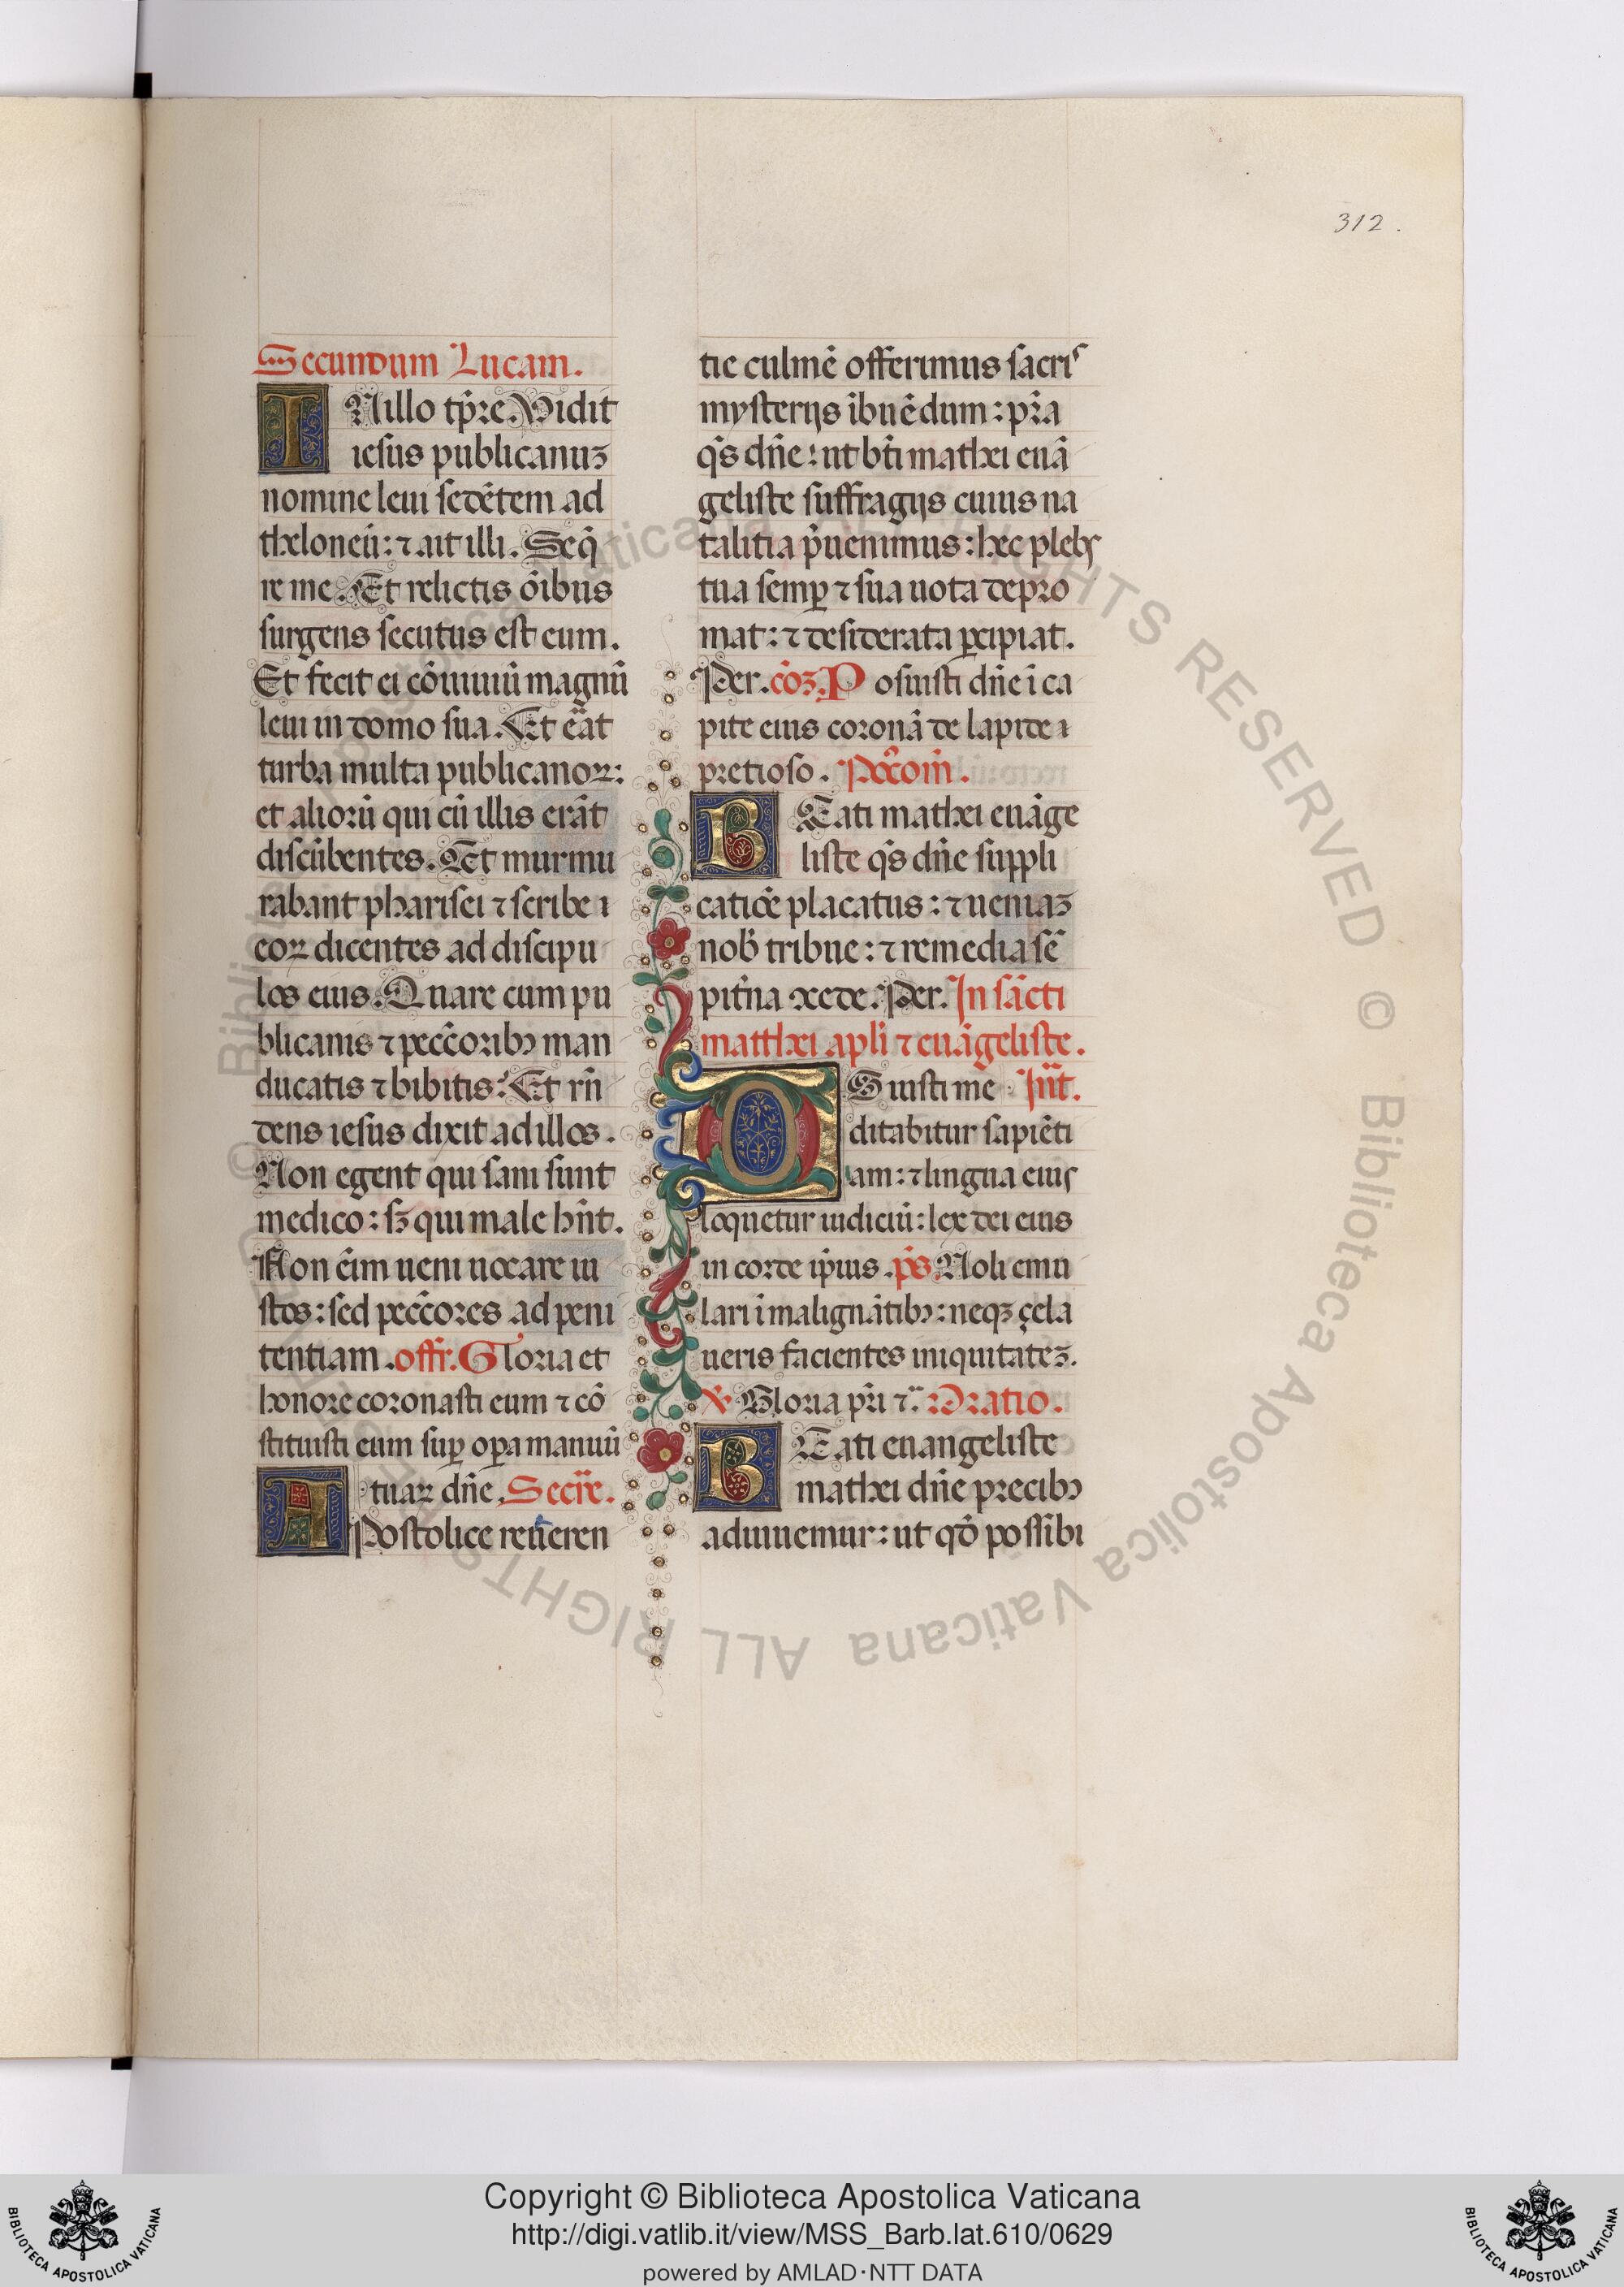 312.
Secundum Lucam.
IN illo tp̄re. Vidit
iesus publicanuꝫ
nomine leui sedētem ad
theloneū: ⁊ ait illi. Seq̄
re me. Et relictis oībus
surgens secutus est eum.
Et fecit ei cōuiuiū magnū
leui in domo sua. Et eāt
turba multa publicanoꝝ:
et aliorū qui cū illis erāt
discūbentes. Et murmu
rabant pharisei ⁊ scribe i
eoꝝ dicentes ad discipu
los eius. Quare cum pu
blicanis ⁊ pecc̄oribꝰ man
ducatis ⁊ bibitis? Et rn̄
dens iesus dixit ad illos.
Non egent qui sani sunt
medico: sꝫ qui male hn̄t.
Non ēim ueni uocare iu
stos: sed pecc̄ores ad peni
tentiam. offr. Gloria et
honore coronasti eum ⁊ cō
stituisti eum suꝑ oꝑa manuū
tuaꝝ dn̄e. Secr̄e.
APostolice reueren
tie culmē offerimus sacriˢ
mysterijs ībuēdum: pr̄ia
qs̄ dn̄e: ut bt̄i mathei euā
geliste suffragijs cuius na
talitia p̄uenimus: hec plebs
tua semꝑ ⁊ sua uota depro
mat: ⁊ desiderata ꝑcipiat.
Per. cōꝫ. Posuisti dn̄e ī ca
pite eius coronā de lapide i
pretioso. Poc̄oīn.
BEati mathei euāge
liste qs̄ dn̄e suppli
catiōe placatus: ⁊ ueniaꝫ
nob̄ tribue: ⁊ remedia sē
pit̄na ↄcede. Per. In sācti
matthei apl̄i ⁊ euāgeliste.
OS iusti me Int̄.
ditabitur sapiēti
am: ⁊ lingua eius
loquetur iudiciū: lex dei eius
in corde ip̄ius. ps̄ Noli emu
lari ī malignātibꝰ: neqꝫ çela
ueris facientes iniquitateꝫ.
℣ Gloria pr̄i ⁊c̄. Oratio.
BEati euangeliste
mathei dn̄e precibꝰ
adiuuemur: ut qō possibi
Copyright © Biblioteca Apostolica Vaticana
http://digi.vatlib.it/view/MSS_Barb.lat.610/0629
powered by AMLAD·NTT DATA
BIBLIOTECA APOSTOLICA VATICANA
BIBLIOTECA APOSTOLICA VATICANA
© Biblioteca Apostolica Vaticana ALL RIGHTS RESERVED
© Biblioteca Apostolica Vaticana ALL RIGHTS RESERVED